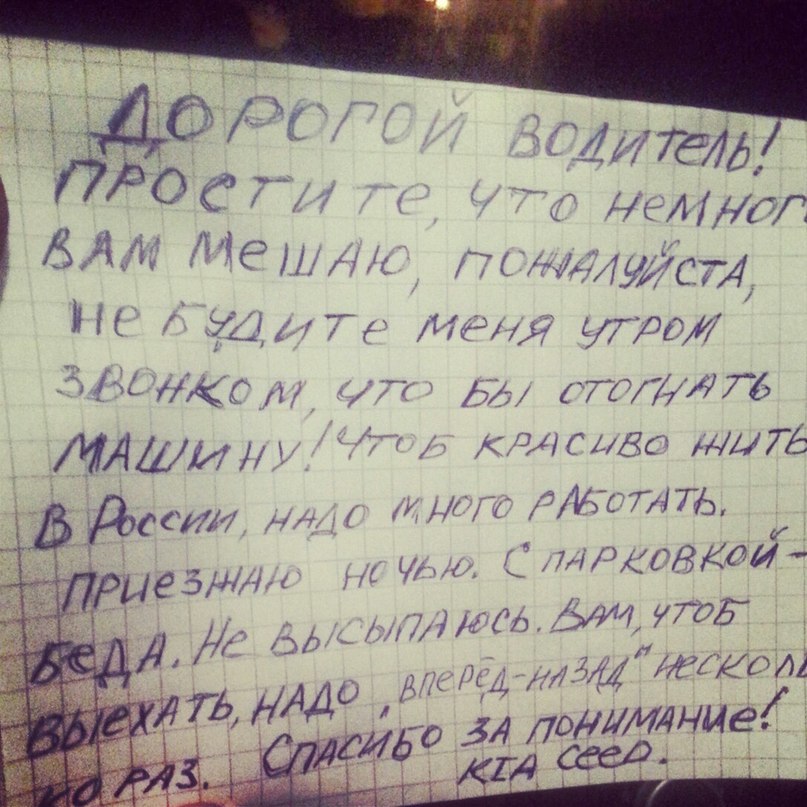 ДОРОГОЙ ВОДИТЕЛЬ!
ПРОСТИТЕ, ЧТО НЕМНОГ
ВАМ МЕШАЮ, ПОЖАЛУЙСТА,
НЕ БУДИТЕ МЕНЯ УТРОМ
ЗВОНКОМ, ЧТО БЫ ОТОГНАТЬ
МАШИНУ! ЧТОБ КРАСИВО ЖИТЬ
В РОССИИ, НАДО МНОГО РАБОТАТЬ.
ПРИЕЗЖАЮ НОЧЬЮ. С ПАРКОВКОЙ -
БЕДА. НЕ ВЫСЫПАЮСЬ. ВАМ, ЧТОБ
ВЫЕХАТЬ, НАДО „ВПЕРЁД-НАЗАД" НЕСКОЛЬ
КО РАЗ. СПАСИБО ЗА ПОНИМАНИЕ!
KIA CEED.